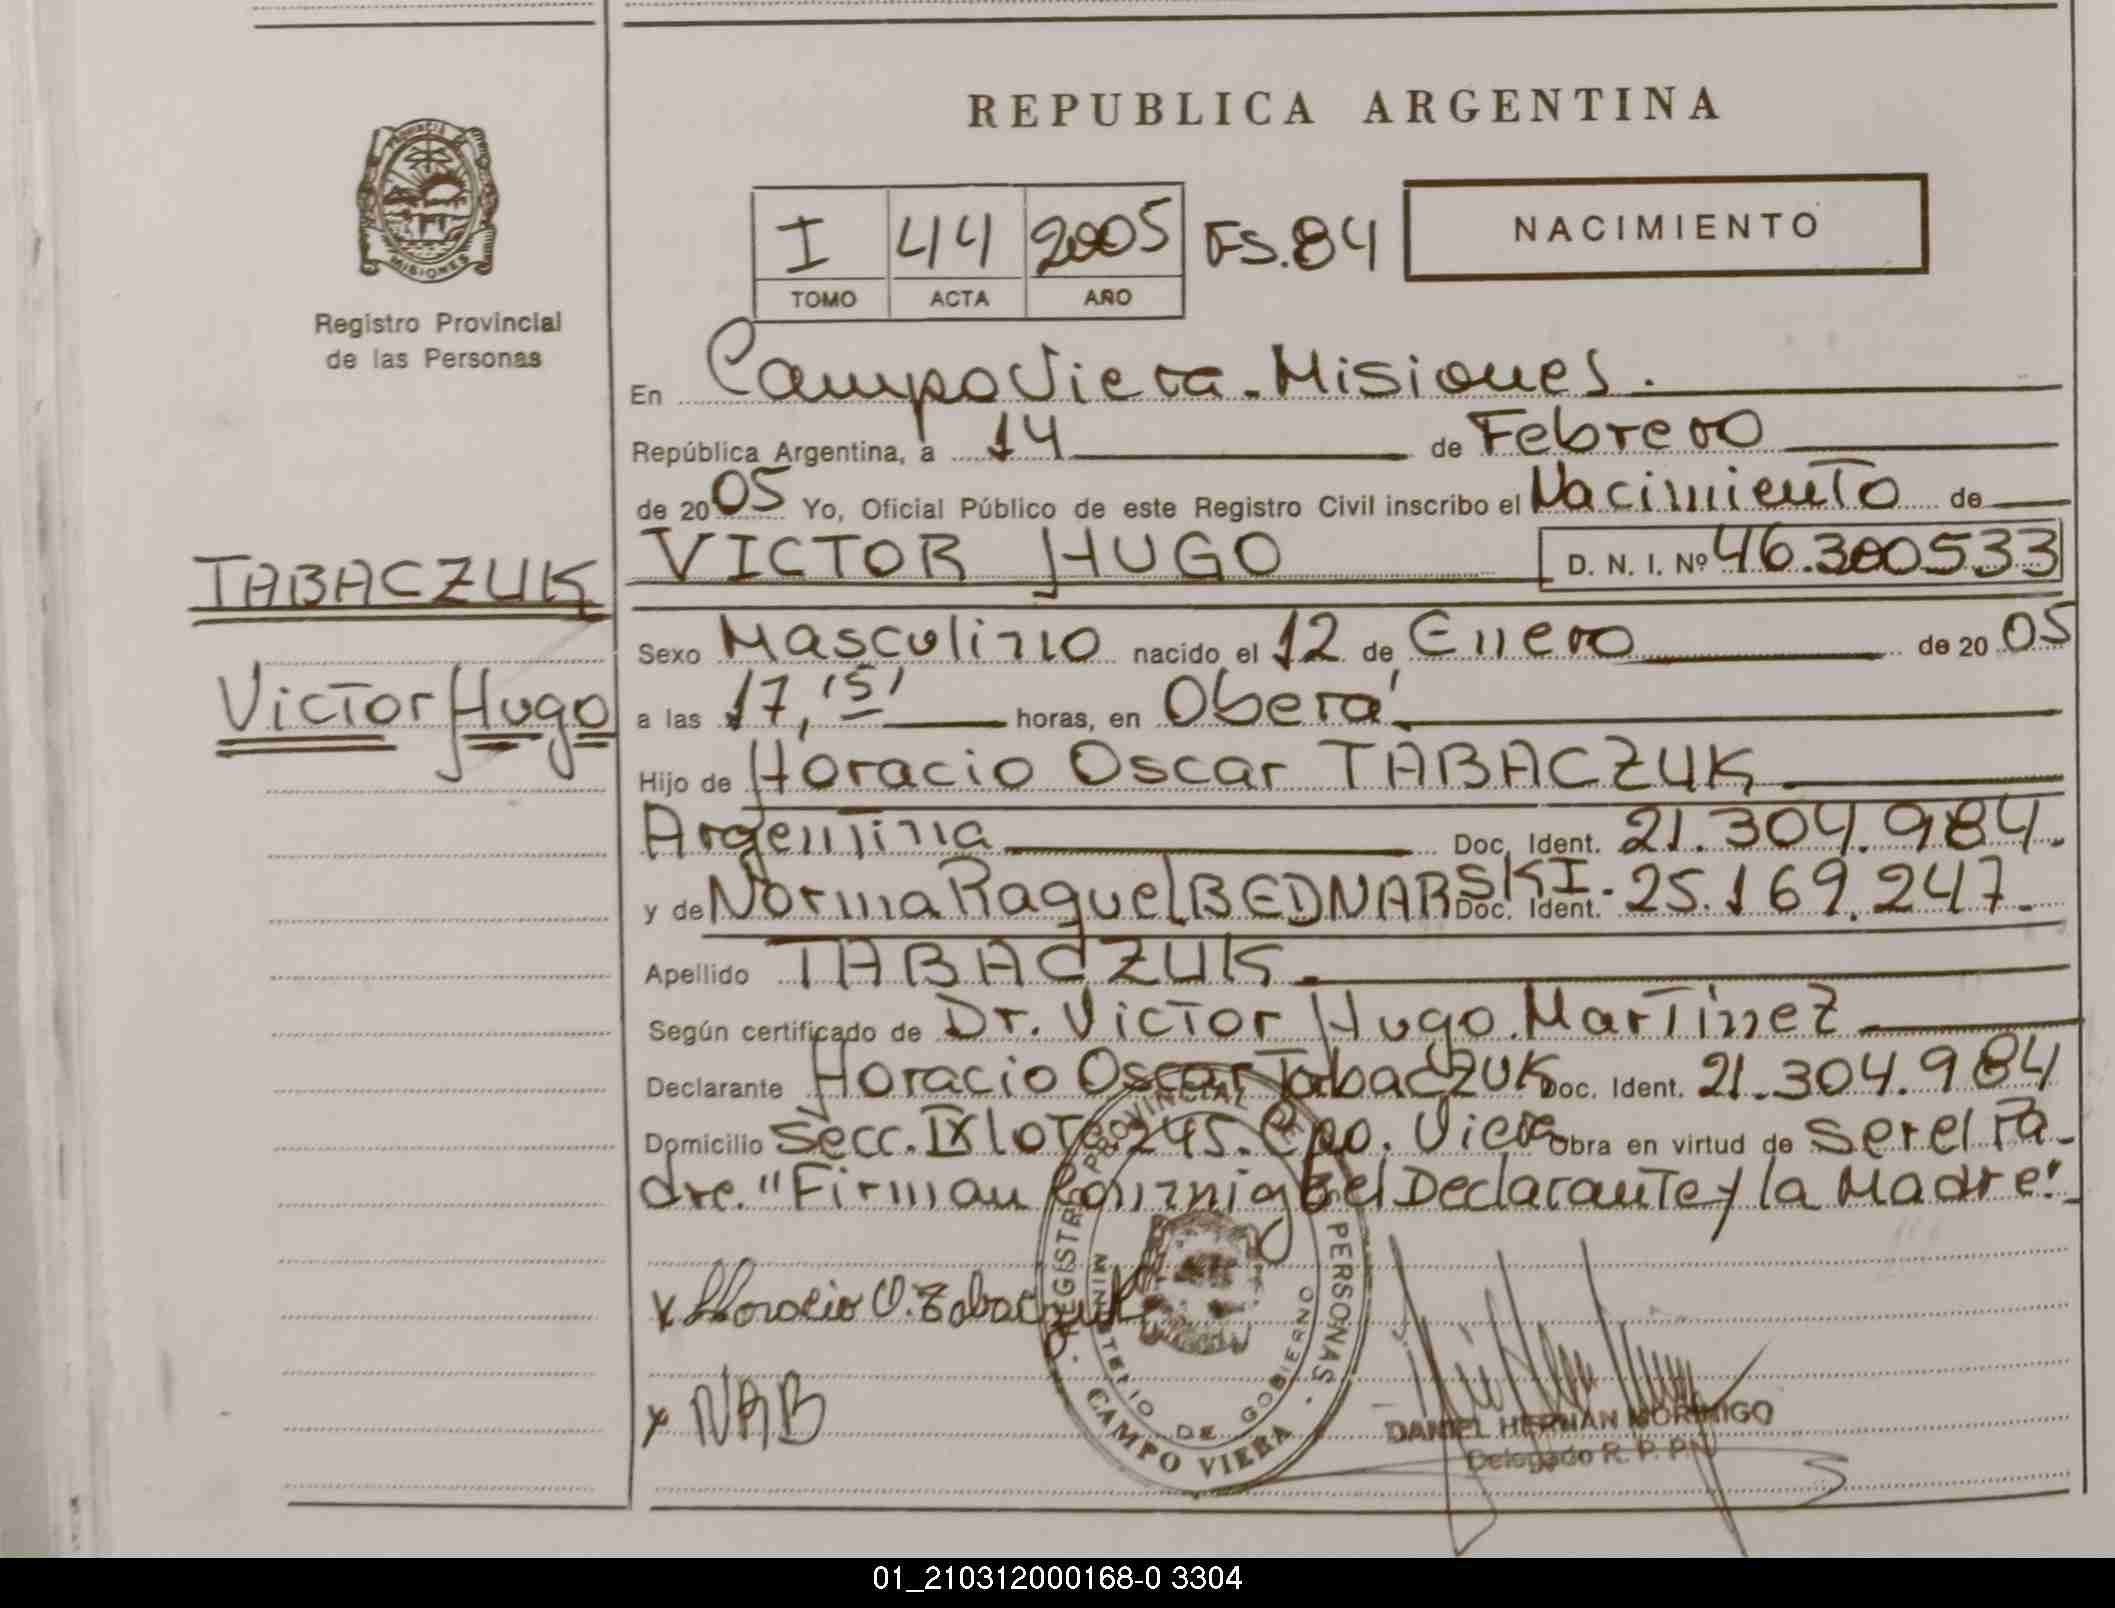 REPUBLICA ARGENTINA
PROVINCIA DE
MISIONES
Registro Provincial
de las Personas
I 44 2005 FS.84 NACIMIENTO
TOMO ACTA AÑO
En Campo Viera - Misiones.
República Argentina, a 14 de Febrero
de 2005 Yo, Oficial Público de este Registro Civil inscribo el Nacimiento de
VICTOR HUGO D. N. I. Nº 46.300533
TABACZUK
Victor Hugo
Sexo Masculino nacido el 12 de Enero de 2005
a las 17,15' horas, en Oberá
Hijo de Horacio Oscar TABACZUK
Argentina Doc. Ident. 21.304.984.
y de Norma Raquel BEDNARSKI - Doc. Ident. 25.169.247.
Apellido TABACZUK.
Según certificado de Dr. Victor Hugo Martinez
Declarante Horacio Oscar Tabaczuk Doc. Ident. 21.304.984
Domicilio Secc. IX lote 245. Cpo. Viera Obra en virtud de ser el Pa-
dre. "Firman Conmigo el Declarante y la Madre".
x Horacio O. Tabaczuk
x NRB
REGISTRO PROVINCIAL DE LAS PERSONAS
MINISTERIO DE GOBIERNO
CAMPO VIERA
DANIEL HERNAN MORINIGO
Delegado R. P. P.
01_210312000168-0 3304